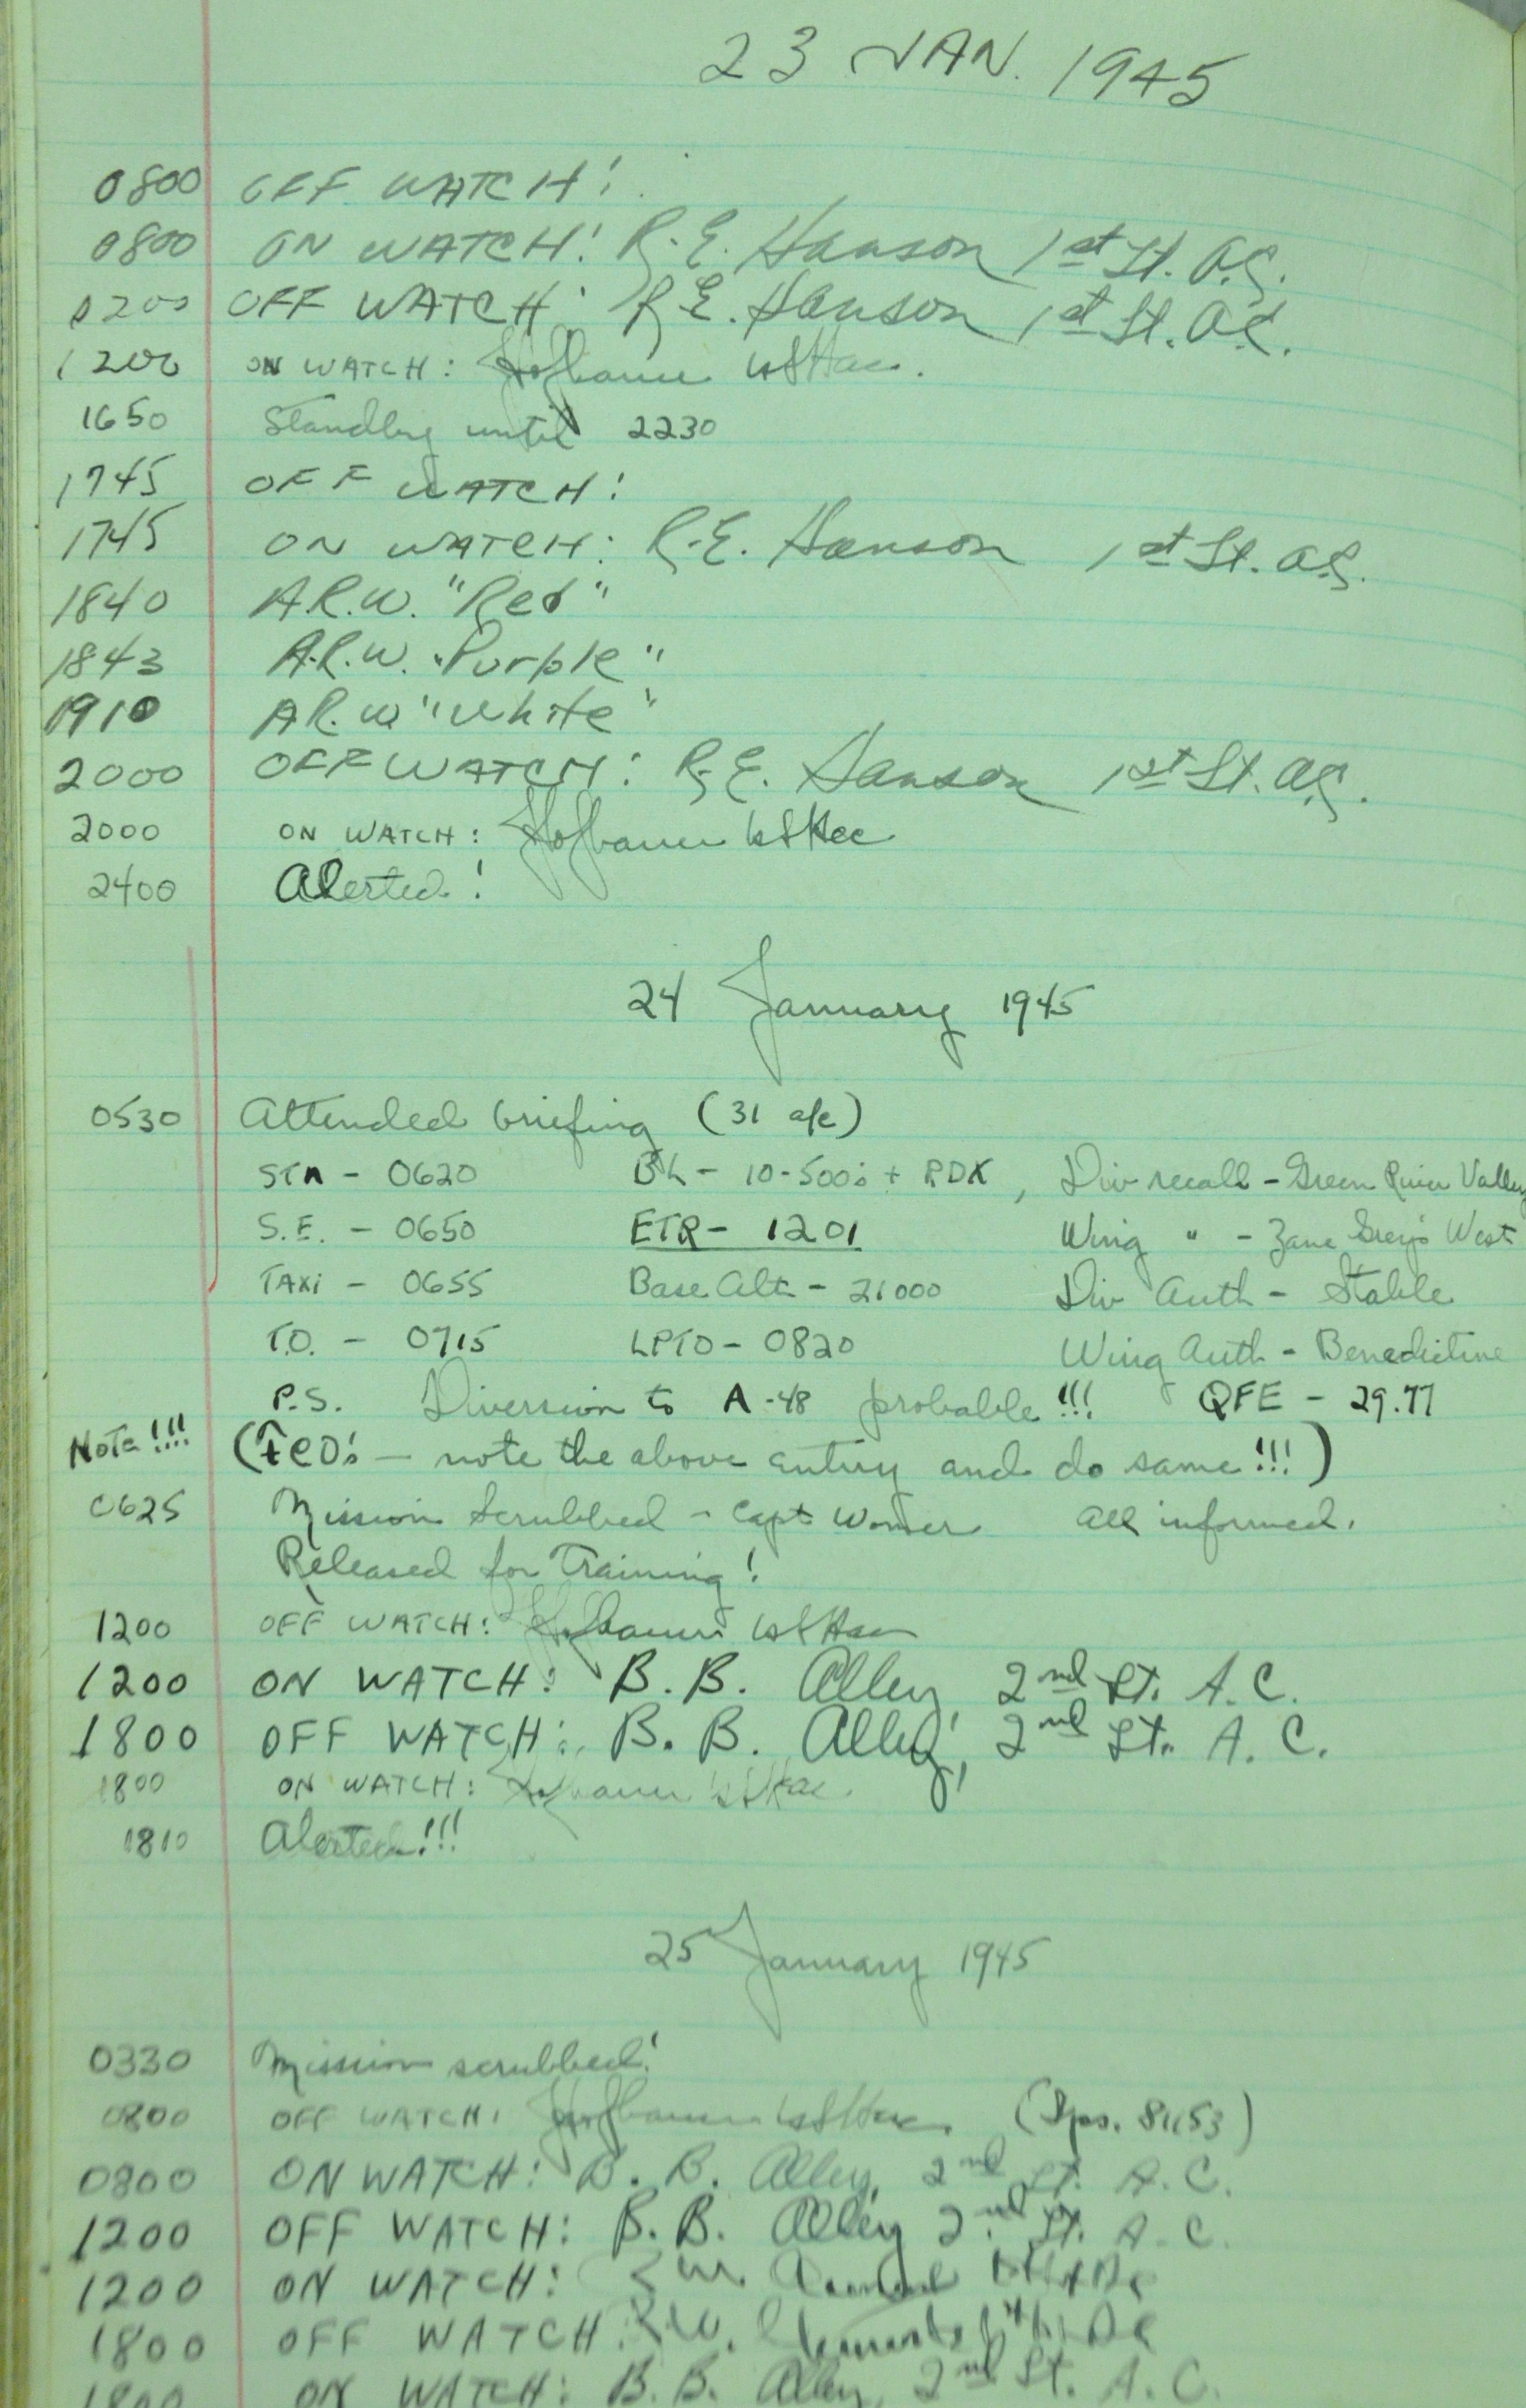 23 JAN. 1945
0800 OFF WATCH!
0800 ON WATCH! R.E. Hanson 1st Lt. A.C.
1200 OFF WATCH: R.E. Hanson 1st Lt. A.C.
1200 ON WATCH: Hofbauer 1st Lt AC.
1650 Standby until 2230
1745 OFF WATCH!
1745 ON WATCH: R.E. Hanson 1st Lt. A.C.
1840 A.R.W. "Red"
1843 A.R.W. "Purple"
1910 A.R.W "White"
2000 OFF WATCH: R.E. Hanson 1st Lt. A.C.
2000 ON WATCH: Hofbauer 1st Lt AC
2400 Alerted!
24 January 1945
0530 Attended briefing (31 a/c)
STA - 0620 BL - 10-500's + RDX, Div recall - Green River Valley
S.E. - 0650 ETR - 1201 Wing " - Zane Grey's West
TAXI - 0655 Base Alt - 21000 Div Auth - Stable
T.O. - 0715 LPTO - 0820 Wing Auth - Benedictine
P.S. Diversion to A-48 probable!!! QFE - 29.77
Note!!!! (FCO's - note the above entry and do same!!!)
0625 Mission Scrubbed - Capt. All informed.
Released for Training!
1200 OFF WATCH: Hofbauer 1st Lt AC
1200 ON WATCH: B. B. Alley, 2nd Lt. A.C.
1800 OFF WATCH: B. B. Alley, 2nd Lt. A.C.
1800 ON WATCH: Hofbauer 1st Lt AC.
1810 Alerted!!!
25 January 1945
0330 Mission scrubbed!
0800 OFF WATCH: Hofbauer 1st Lt AC.
0800 ON WATCH: B. B. Alley, 2nd Lt. A.C.
1200 OFF WATCH: B. B. Alley 2nd Lt. A.C.
1200 ON WATCH:
1800 OFF WATCH:
1800 ON WATCH: B. B. Alley, 2nd Lt. A.C.